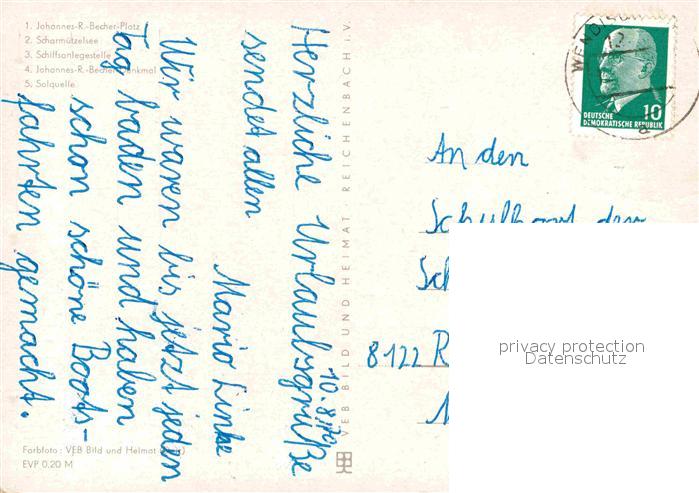 1. Johannes-R.-Becher-Platz
2. Scharmützelsee
3. Schiffsanlegestelle
4. Johannes-R.-Becher-Denkmal
5. Solquelle
Herzliche Urlaubsgrüße
sendet allen
Mario Linke
10.8.
Wir waren bis jetzt jeden
Tag baden und haben
schon schöne Boots-
fahrten gemacht.
Farbfoto: VEB Bild und Heimat
EVP 0,20 M
VEB BILD UND HEIMAT REICHENBACH I.V.
WENDISCH
DEUTSCHE
DEMOKRATISCHE REPUBLIK
10
An den
Schulhort der
Sch
8122 R
privacy protection
Datenschutz